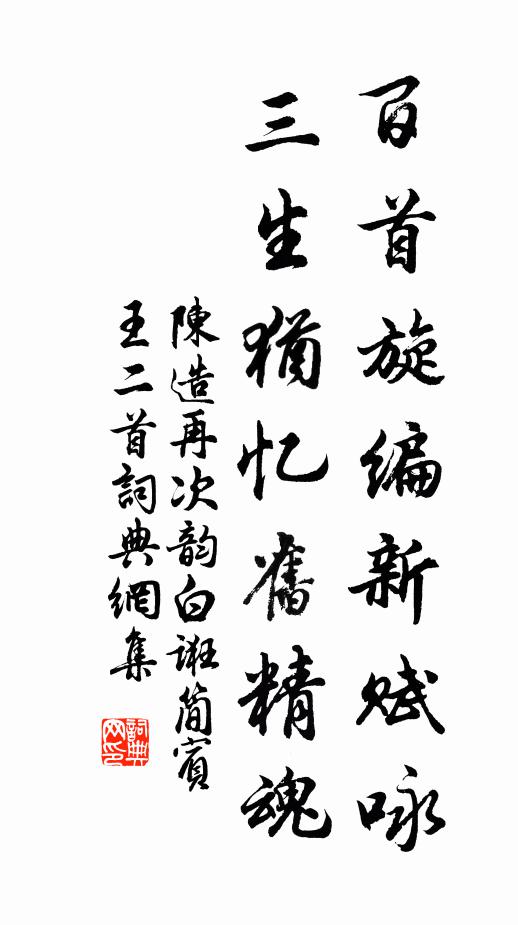 百首旋编新赋咏
三生猶忆舊精魂
陳造再次韵白诳简賓
王二首詞典網集
詞典网印